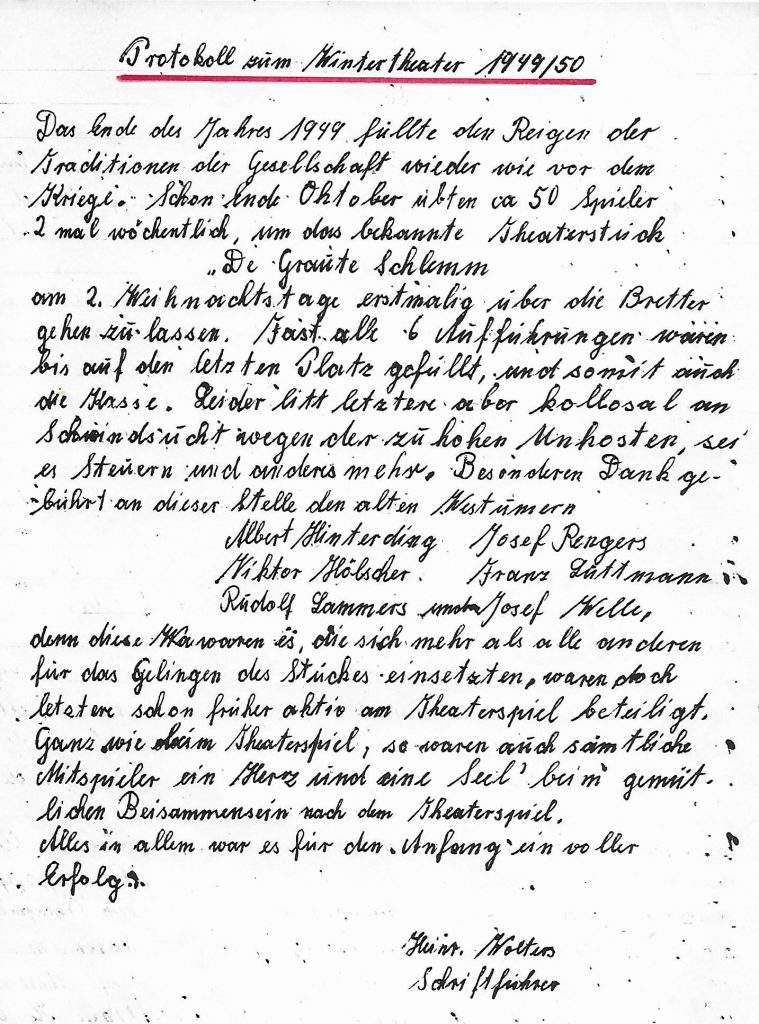 Protokoll zum Wintertheater 1949/50
Das Ende des Jahres 1949 füllte den Reigen der
Traditionen der Gesellschaft wieder wie vor dem
Kriege. Schon Ende Oktober übten ca 50 Spieler
2 mal wöchentlich, um das bekannte Theaterstück
„De Graute Schlemm
am 2. Weihnachtstage erstmalig über die Bretter
gehen zu lassen. Fast alle 6 Aufführungen waren
bis auf den letzten Platz gefüllt, und somit auch
die Kasse. Leider litt letztere aber kollosal an
Schwindsucht wegen der zu hohen Unkosten, sei
es Steuern und anderes mehr. Besonderen Dank ge-
bührt an dieser Stelle den alten Westumern
Albert Hinterding Josef Rengers
Viktor Hölscher. Franz Lüttmann
Rudolf Lammers und Josef Welle,
denn diese waren es, die sich mehr als alle anderen
für das Gelingen des Stückes einsetzten, waren doch
letztere schon früher aktiv am Theaterspiel beteiligt.
Ganz wie beim Theaterspiel, so waren auch sämtliche
Mitspieler ein Herz und eine Seel' beim gemüt-
lichen Beisammensein nach dem Theaterspiel.
Alles in allem war es für den Anfang ein voller
Erfolg.
Heinr. Wolters
Schriftführer